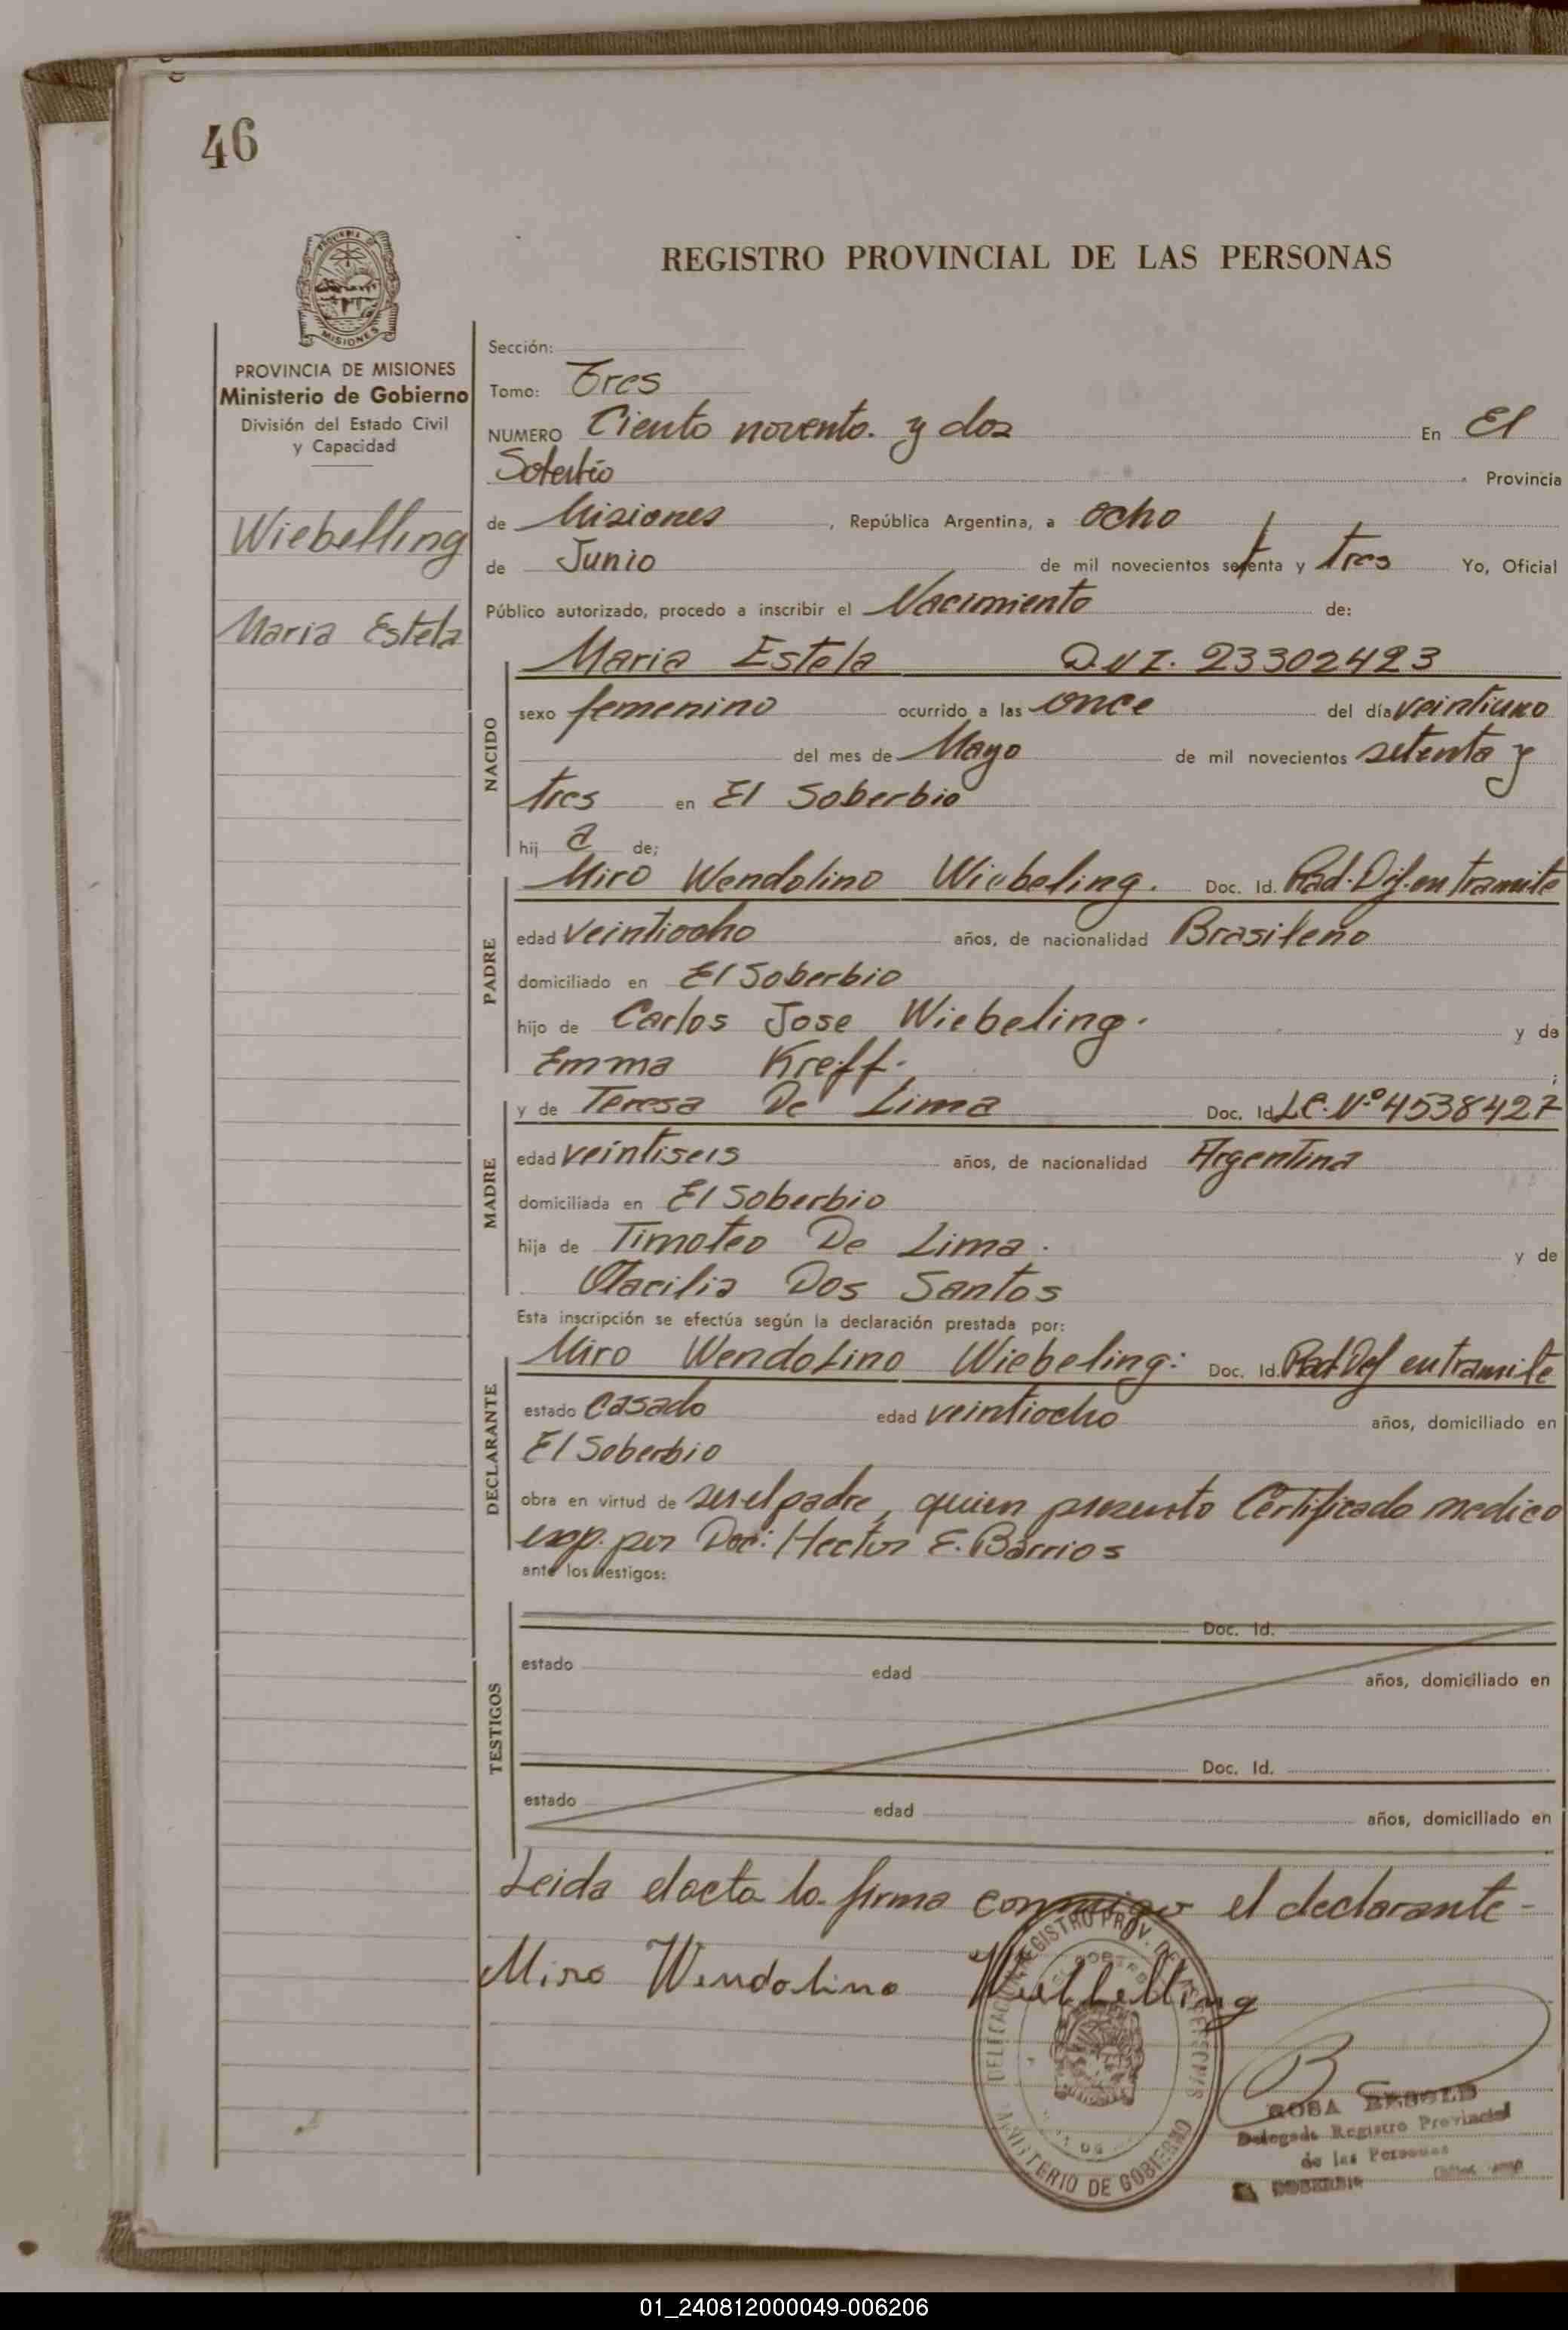 46
REGISTRO PROVINCIAL DE LAS PERSONAS
PROVINCIA DE MISIONES
Ministerio de Gobierno
División del Estado Civil
y Capacidad
Wiebelling
Maria Estela
Sección:
Tomo: Tres
NUMERO Ciento novento. y dos En El
Soberbio Provincia
de Misiones, República Argentina, a ocho
de Junio de mil novecientos setenta y tres Yo, Oficial
Público autorizado, procedo a inscribir el Nacimiento de:
NACIDO
Maria Estela D.N.I. 23302423
sexo femenino ocurrido a las once del día veintiuno
del mes de Mayo de mil novecientos setenta y
tres en El Soberbio
hij a de;
PADRE
Miro Wendolino Wiebeling. Doc. Id. Rad. Def. en tramite
edad veintiocho años, de nacionalidad Brasileño
domiciliado en El Soberbio
hijo de Carlos Jose Wiebeling. y de
Emma Kreff. ;
MADRE
y de Teresa De Lima Doc. Id. L.C. Nº 4538427
edad veintiseis años, de nacionalidad Argentina
domiciliada en El Soberbio
hija de Timoteo De Lima. y de
Otacilia Dos Santos
Esta inscripción se efectúa según la declaración prestada por:
DECLARANTE
Miro Wendolino Wiebeling: Doc. Id. Rad. Def en tramite
estado casado edad veintiocho años, domiciliado en
El Soberbio
obra en virtud de ser el padre, quien presento Certificado medico
exp. por Doc: Hector E. Barrios
ante los testigos:
TESTIGOS
Doc. Id.
estado edad años, domiciliado en
Doc. Id.
estado edad años, domiciliado en
Leida elacta la firma conmigo el declarante-
Miro Wendolino Wiebelling
DELEGACION REGISTRO PROV. DE LAS PERSONAS
MINISTERIO DE GOBIERNO
ROSA
Delegada Registro Provincial
de las Personas
SOBERBIO
01_240812000049-006206